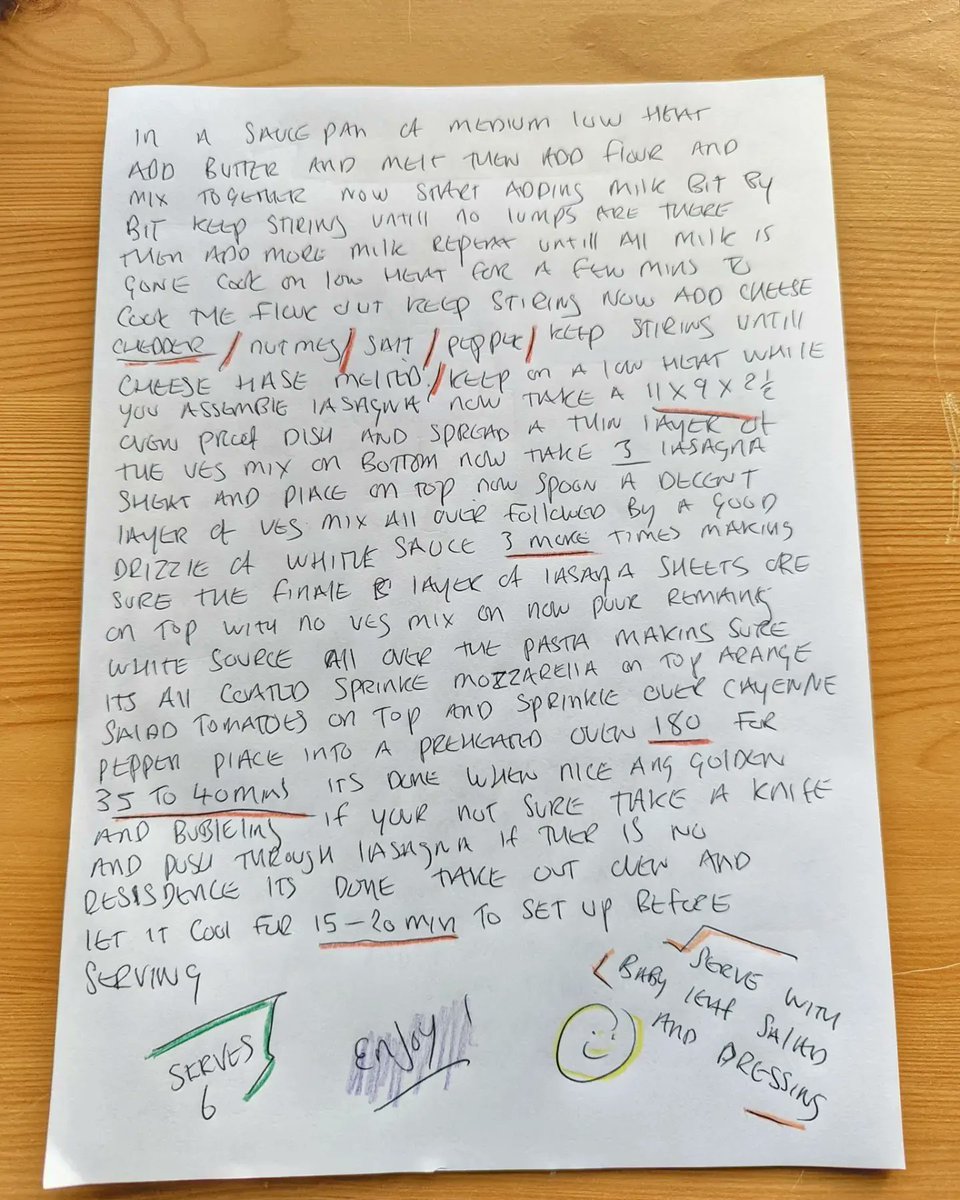 IN A SAUCE PAN ON MEDIUM LOW HEAT
ADD BUTTER AND MELT THEN ADD FLOUR AND
MIX TOGETHER NOW START ADDING MILK BIT BY
BIT KEEP STIRING UNTILL NO LUMPS ARE THERE
THEN ADD MORE MILK REPEAT UNTILL ALL MILK IS
GONE COOK ON LOW HEAT FOR A FEW MINS TO
COOK THE FLOUR OUT KEEP STIRING NOW ADD CHEESE
CHEDDER / NUTMEG / SALT / PEPPER / KEEP STIRING UNTILL
CHEESE HASE MELTED / KEEP ON A LOW HEAT WHILE
YOU ASSEMBLE LASAGNA NOW TAKE A 11 X 9 X 2½
OVEN PROOF DISH AND SPREAD A THIN LAYER OF
THE VEG MIX ON BOTTOM NOW TAKE 3 LASAGNA
SHEAT AND PLACE ON TOP NOW SPOON A DECENT
LAYER OF VEG MIX ALL OVER FOLLOWED BY A GOOD
DRIZZLE OF WHITE SAUCE 3 MORE TIMES MAKING
SURE THE FINALE LAYER OF LASAGNA SHEETS ARE
ON TOP WITH NO VEG MIX ON NOW POUR REMANING
WHITE SOURCE ALL OVER THE PASTA MAKING SURE
ITS ALL COATED SPRINKE MOZZARELLA ON TOP ARANGE
SALAD TOMATOES ON TOP AND SPRINKLE OVER CAYENNE
PEPPER PLACE INTO A PREHEATED OVEN 180 FOR
35 TO 40 MINS ITS DONE WHEN NICE ANG GOLDEN
AND BUBLEING IF YOUR NOT SURE TAKE A KNIFE
AND PUSH THROUGH LASAGNA IF THER IS NO
RESISDENCE ITS DONE TAKE OUT OVEN AND
LET IT COOL FOR 15-20 MIN TO SET UP BEFORE
SERVING
SERVES
6
ENJOY!
SERVE WITH
BABY LEAF SALAD
AND DRESSING